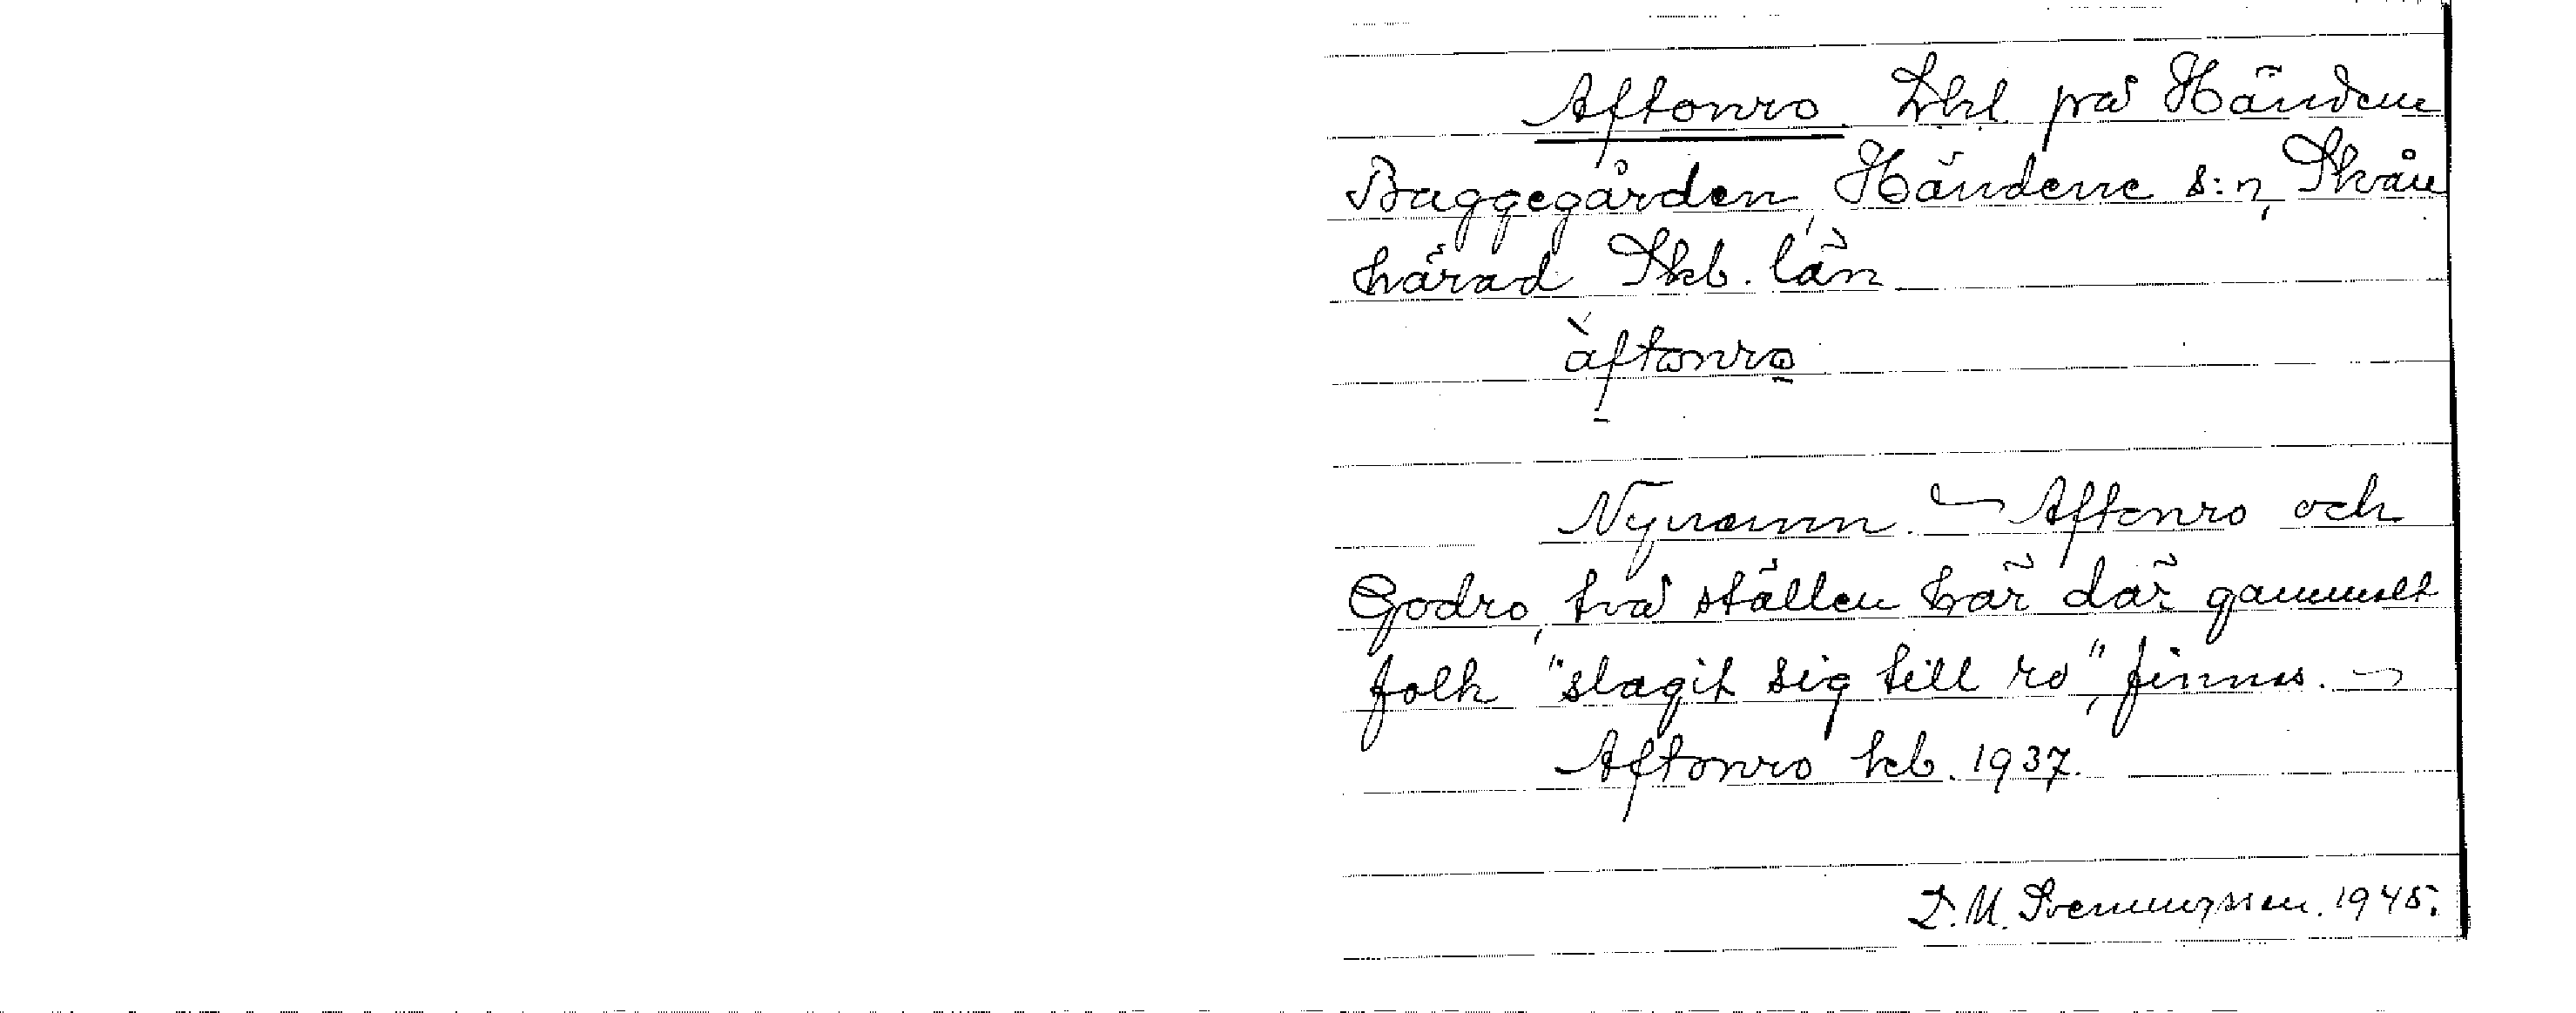 Aftonro. Lhl på Händene
Baggegården, Händene s:n, Skån
härad Skb. län
àftonro
Nynamn. Aftonro och
Godro, två ställen här där gammalt
folk "slagit sig till ro", finnas.
Aftonro kb. 1937.
D. U. Svenningsson. 1945.